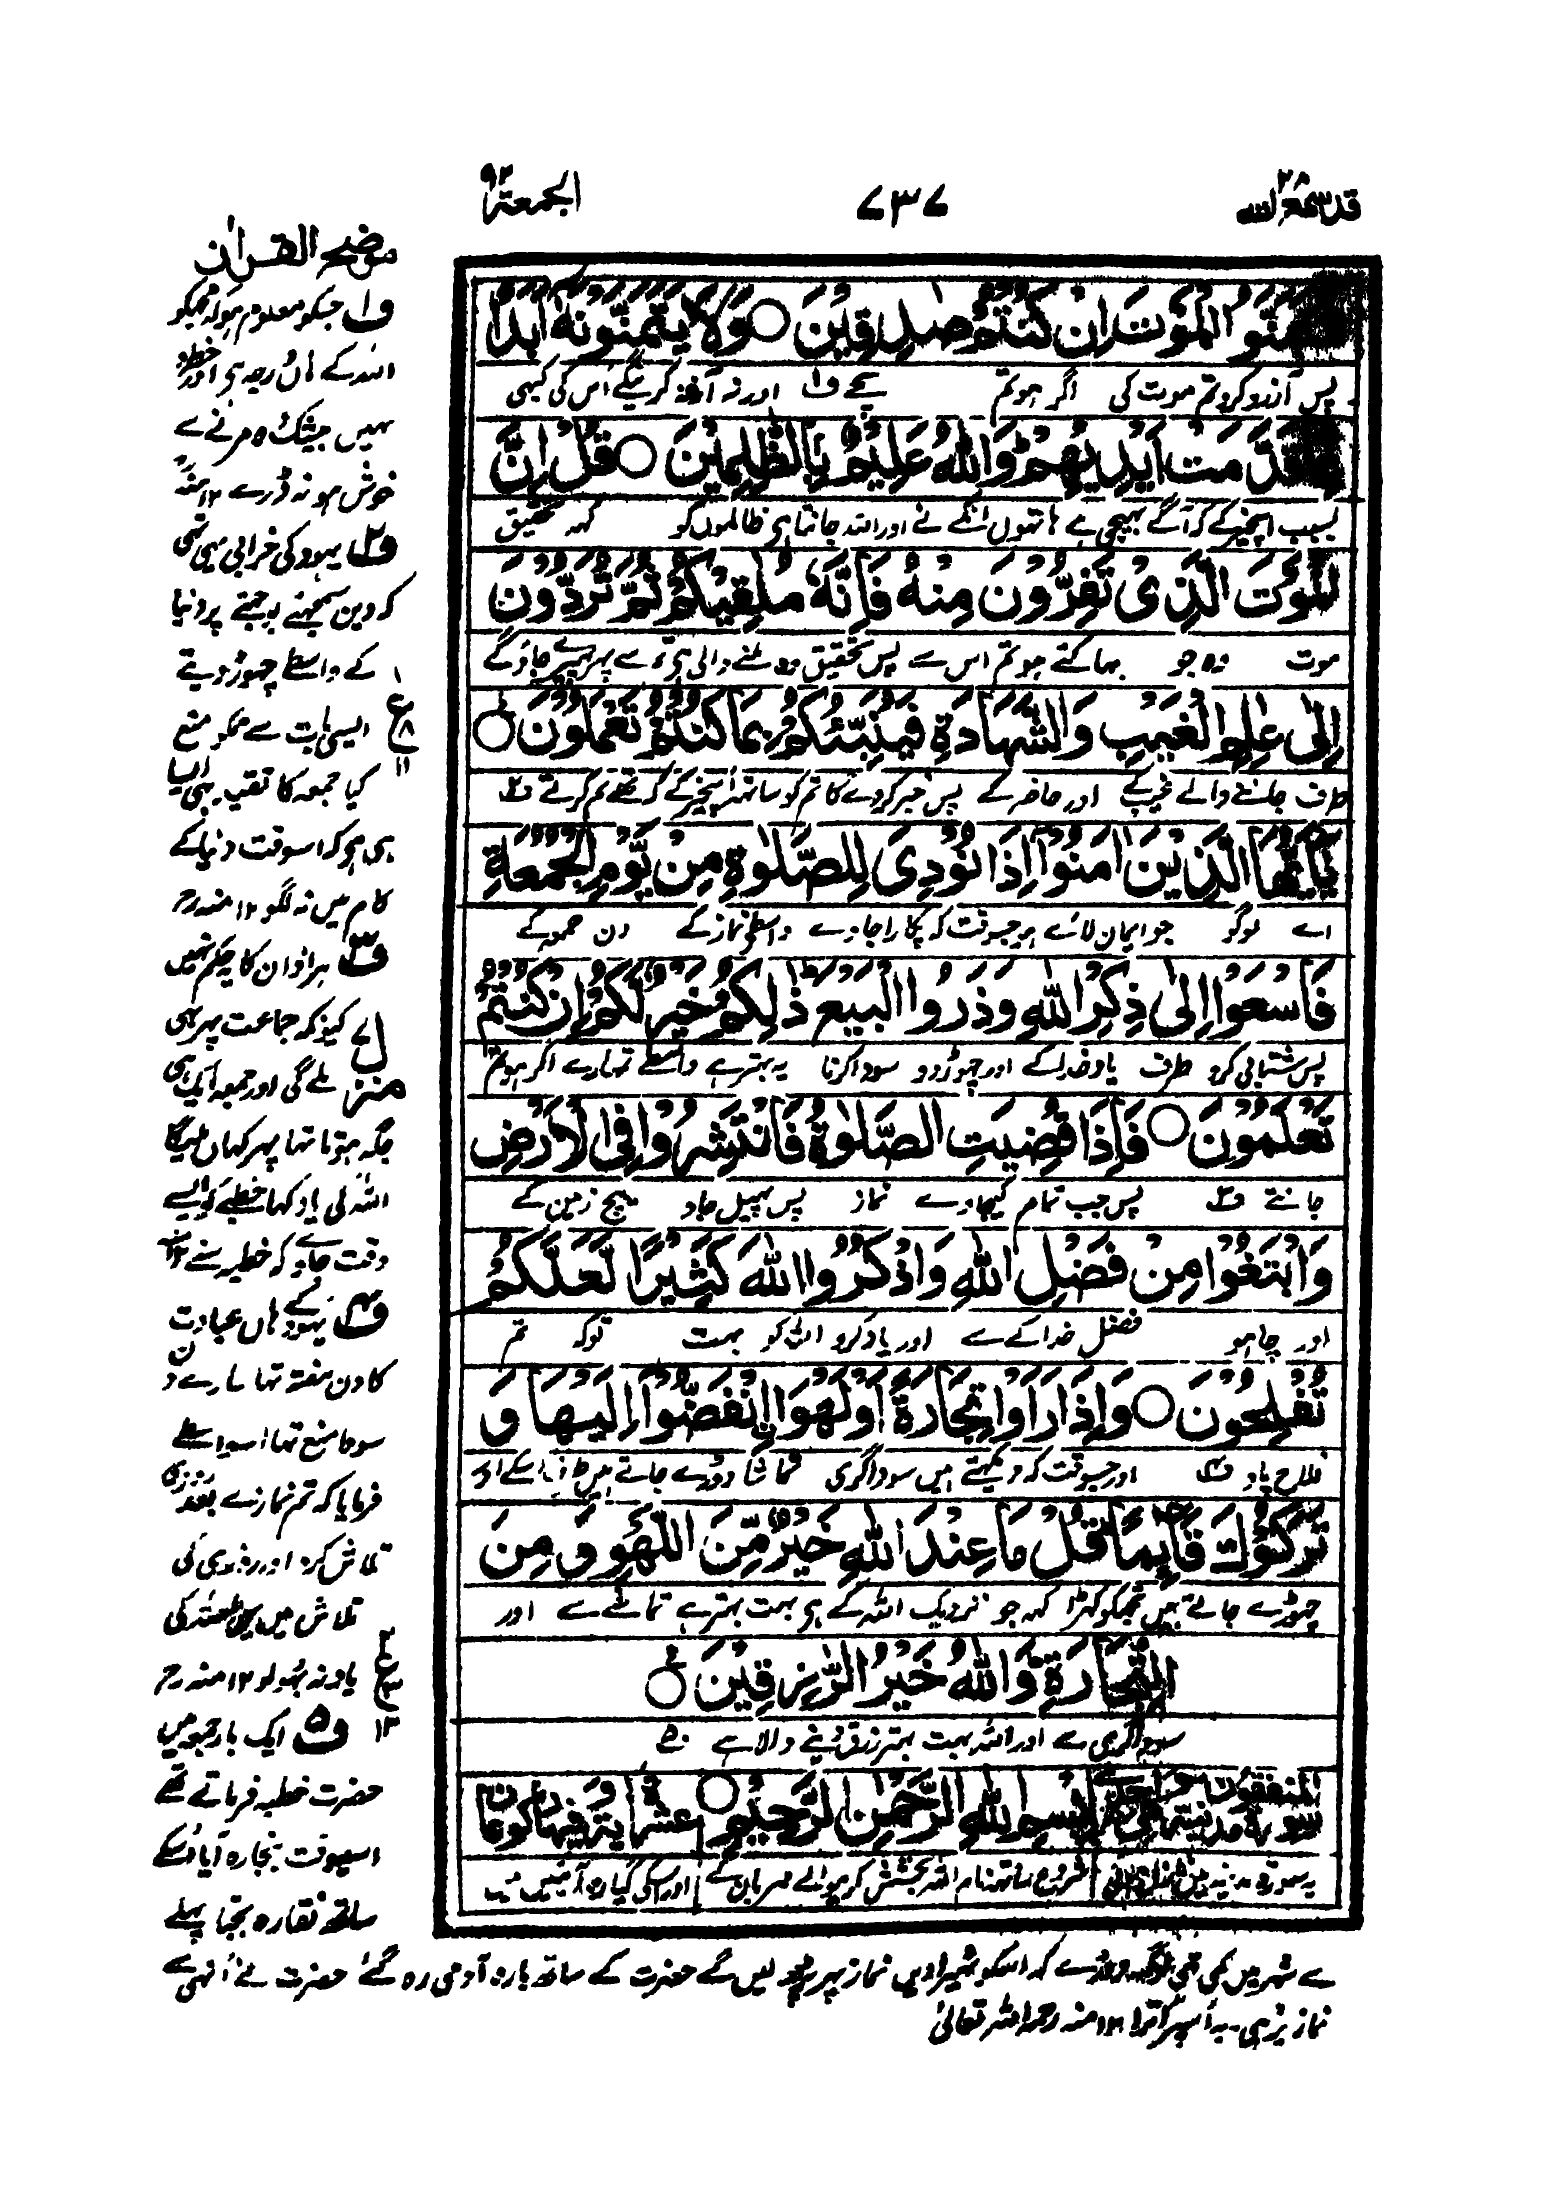 قد سمع الله ٢٨
٧٣٧
الجمعة ٦٢
فَتَمَنَّوُا الْمَوْتَ اِنْ كُنْتُمْ صٰدِقِيْنَ ○ وَلَا يَتَمَنَّوْنَهٗ اَبَدًا
پس آرزو کرو تم موت کی اگر ہو تم سچے ف١ اور نہ آرزو کرینگے اس کی کبھی
بِمَا قَدَّمَتْ اَيْدِيْهِمْ وَاللّٰهُ عَلِيْمٌۢ بِالظّٰلِمِيْنَ ○ قُلْ اِنَّ
بسبب اسچیز کے کہ آگے بھیجی ہے ہاتھوں انکے نے اور اللہ جانتا ہی ظالموں کو کہہ تحقیق
الْمَوْتَ الَّذِيْ تَفِرُّوْنَ مِنْهُ فَاِنَّهٗ مُلٰقِيْكُمْ ثُمَّ تُرَدُّوْنَ
موت وہ جو بھاگتے ہو تم اس سے پس تحقیق وہ ملنے والی ہی تم سے پھر پھیرے جاؤگے
اِلٰى عٰلِمِ الْغَيْبِ وَالشَّهَادَةِ فَيُنَبِّئُكُمْ بِمَا كُنْتُمْ تَعْمَلُوْنَ ○
طرف جاننے والے غیب کے اور حاضر کے پس خبر کردے گا تم کو ساتھ اسچیز کے کہ تھے تم کرتے ف٢
يٰٓاَيُّهَا الَّذِيْنَ اٰمَنُوْٓا اِذَا نُوْدِيَ لِلصَّلٰوةِ مِنْ يَّوْمِ الْجُمُعَةِ
اے لوگو جو ایمان لائے ہو جسوقت کہ پکارا جاوے واسطے نماز کے دن جمعہ کے
فَاسْعَوْا اِلٰى ذِكْرِ اللّٰهِ وَذَرُوا الْبَيْعَ ذٰلِكُمْ خَيْرٌ لَّكُمْ اِنْ كُنْتُمْ
پس شتابی کرو طرف یاد خدا کے اور چھوڑ دو سودا کرنا یہ بہتر ہے واسطے تمہارے اگر ہو تم
تَعْلَمُوْنَ ○ فَاِذَا قُضِيَتِ الصَّلٰوةُ فَانْتَشِرُوْا فِي الْاَرْضِ
جانتے ف٣ پس جب تمام کیجاوے نماز پس پھیل جاو بیچ زمین کے
وَابْتَغُوْا مِنْ فَضْلِ اللّٰهِ وَاذْكُرُوا اللّٰهَ كَثِيْرًا لَّعَلَّكُمْ
اور چاہو فضل خدا کے سے اور یاد کرو اللہ کو بہت توکہ تم
تُفْلِحُوْنَ ○ وَاِذَا رَاَوْا تِجَارَةً اَوْ لَهْوَا ۨانْفَضُّوْٓا اِلَيْهَا وَ
فلاح پاو ف٤ اور جسوقت کہ دیکھتے ہیں سوداگری تماشا دوڑے جاتے ہیں طرف اسکے اور
تَرَكُوْكَ قَآئِمًا قُلْ مَا عِنْدَ اللّٰهِ خَيْرٌ مِّنَ اللَّهْوِ وَمِنَ
چھوڑے جاتے ہیں تجھکو کھڑا کہہ جو نزدیک اللہ کے ہی بہت بہتر ہے تماشے سے اور
التِّجَارَةِ وَاللّٰهُ خَيْرُ الرّٰزِقِيْنَ ○
سوداگری سے اور اللہ بہت بہتر رزق دینے والا ہے ف٥
بِسْمِ اللّٰهِ الرَّحْمٰنِ الرَّحِيْمِ ○
شروع ساتھ نام اللہ بخشش کرنیوالے مہربان کے
موضح القرآن
ف١ جسکو معلوم ہو کہ مجھکو
اللہ کے ہاں درجہ ہی اور خطرہ
نہیں بیشک وہ مرنے سے
خوش ہو نہ ڈرے ١٢ منہ
ف٢ یہود کی خرابی یہی تھی
کہ دین سمجھنے بوجھتے پر دنیا
کے واسطے چھوڑ دیتے
١
ع
٨
١١
ایسی بات سے ہمکو منع
کیا جمعہ کا تقید بھی ایسا
ہی ہی کہ اسوقت دنیا کے
کام میں نہ لگو ١٢ منہ رح
ف٣ ہر اذان کا یہ حکم نہیں
کیونکہ جماعت پھر بھی
ملے گی اور جمعہ ایک ہی
جگہ ہوتا تھا پھر کہاں ملیگا
اللہ کی یاد کہا خطبے کو ایسے
وقت جاوے کہ خطبہ سنے ١٢ منہ
ف٤ یہود کے ہاں عبادت
کا دن ہفتہ تھا سارے دن
سودا منع تھا اسواسطے
فرمایا کہ تم نماز کے بعد روزی
تلاش کرو اور روزی کی
تلاش میں اللہ کی
یاد نہ بھولو ١٢ منہ رح
٢
ع
٣
١٢
ف٥ ایک بار جمعہ میں
حضرت خطبہ فرماتے تھے
اسیوقت بنجارہ آیا اسکے
ساتھ نقارہ بجتا پہلے
سے شہر میں کمی تھی لوگ دوڑے کہ اسکو ٹھہراویں نماز پھر پڑھ لیں گے حضرت کے ساتھ بارہ آدمی رہ گئے حضرت نے اُنہی سے
نماز پڑہی یہ اسپر اترا ١٢ منہ رحمہ اللہ تعالیٰ